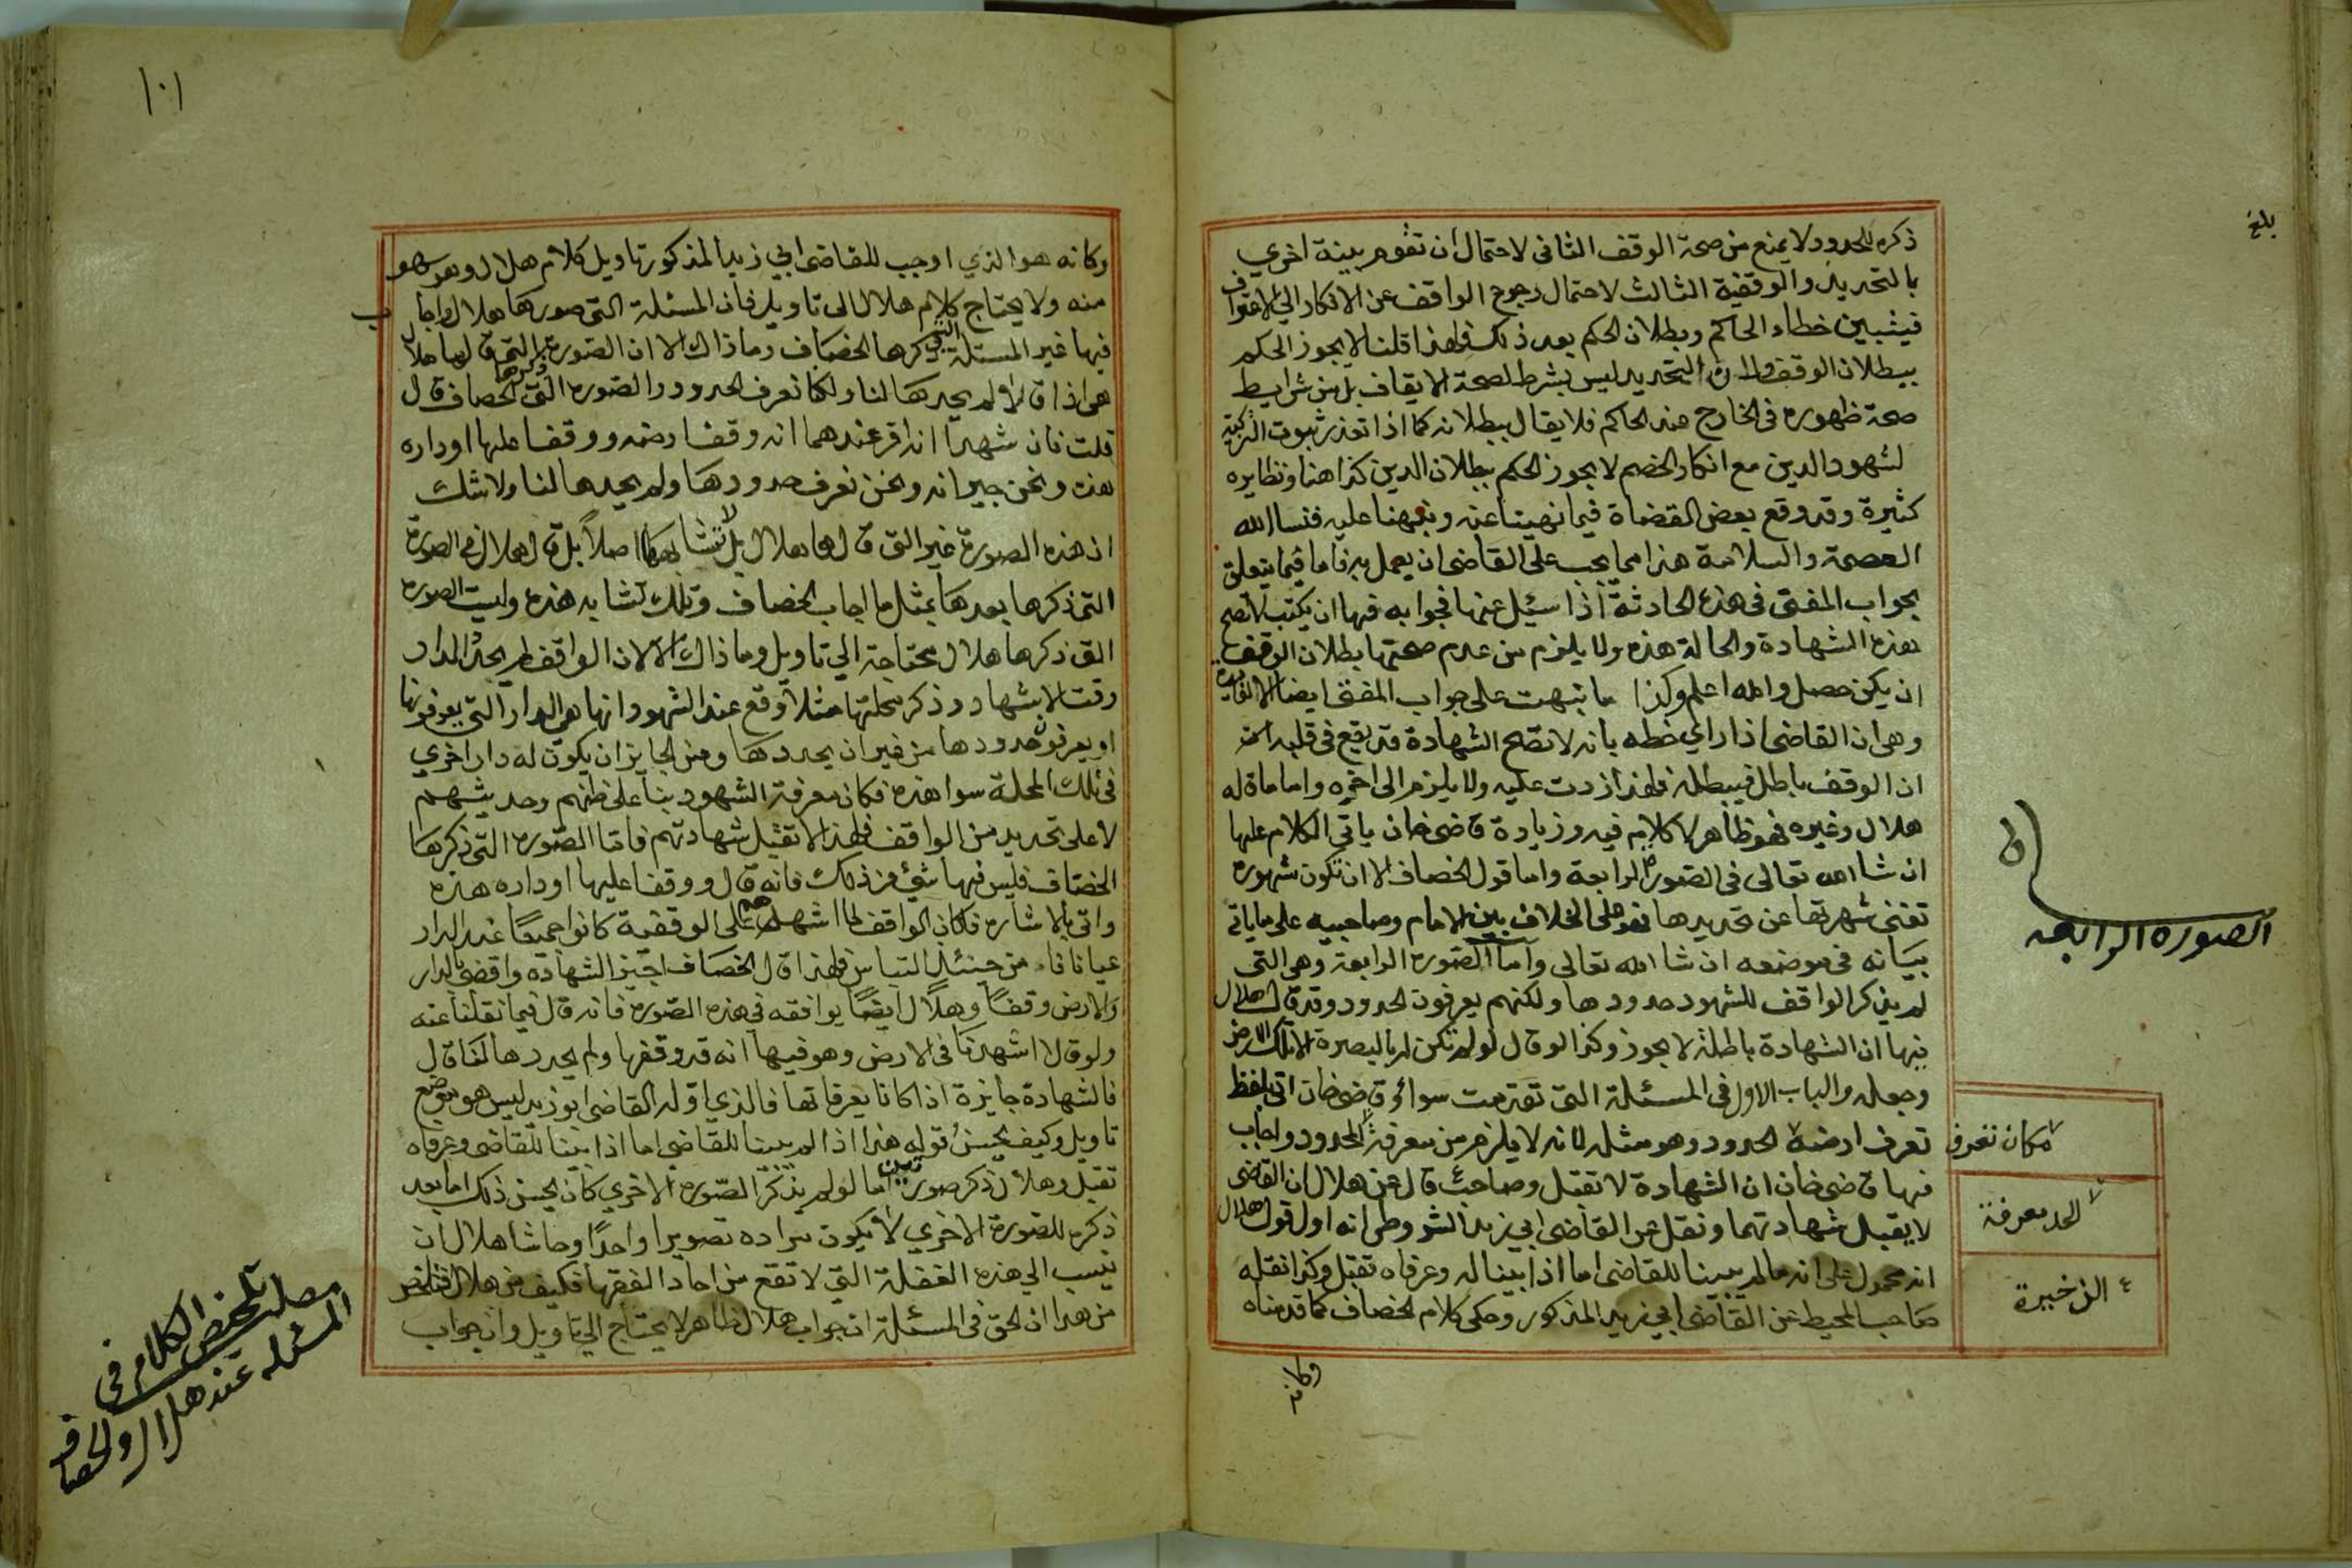 بلغ
ذكره للحدود لا يمنع من صحة الوقف الثاني لاحتمال أن تقوم بينة اخري
بالتحديد والوقفية الثالث لاحتمال رجوع الواقف عن الانكار الي الاعتراف
فيتبين خطاء الحاكم وبطلان الحكم بعد ذلك فلهذا قلنا لا يجوز الحكم
ببطلان الوقف ولان التحديد ليس بشرط لصحة الايقاف بل من شرايط
صحة ظهوره في الخارج عند الحاكم فلا يقال ببطلانه كما اذا تعذر ثبوت التزكية
لشهود الدين مع انكار الخصم لا يجوز الحكم ببطلان الدين كذا هنا ونظايره
كثيرة وقد وقع بعض القضاة فيما نهيتنا عنه ونبهنا عليه فنسال الله
العصمة والسلامة هذا مما يجب على القاضي ان يعمل به فاما فيما يتعلق
بجواب المفتي في هذه الحادثة اذا سئل عنها فجوابه فيها ان يكتب لا تصح
هذه الشهادة والحالة هذه ولا يلزم من عدم صحتها بطلان الوقف
ان يكن حصل والله اعلم وكذا ما نبهت على جواب المفتي ايضا الا لفايدة
وهي ان القاضي اذا راي خطه بانه لا تصح الشهادة قد يقع في قلبه
ان الوقف باطل فيبطله فلهذا زدت عليه ولا يلزم الى اخره واما ما قاله
هلال وغيره فهو ظاهر لا كلام فيه وزيادة قاضي خان ياتي الكلام عليها
ان شا الله تعالى في الصورة الرابعة واما قول الخصاف الا ان تكون شهوره
تغني شهرتها عن تحديدها فهو على الخلاف بين الامام وصاحبيه على ما ياتي
بيانه في موضعه ان شا الله تعالى واما الصورة الرابعة وهي التي
لم يذكر الواقف للشهود حدودها ولكنهم يعرفون الحدود وقد قال هلال
فيها ان الشهادة باطلة لا يجوز وكذا لو قال لو لم تكن له بالبصرة الا تلك الارض
وجعله والباب الاول في المسئلة التي تقدمت سواء وقاضي خان اتى بلفظ
تعرف ارضه الحدود وهو مثله لانه لا يلزم من معرفة المحدود واجاب
فيها قاضي خان ان الشهادة لا تقبل وصاحب قال عن هلال ان القاضي
لا يقبل شهادتهما ونقل عن القاضي ابي زيد الشروطي انه اول قول هلال
انه محمول على انه ما لم يبينا للقاضي اما اذا بينا له وعرفاه تقبل وكذا نقله
صاحب المحيط عن القاضي ابي زيد المذكور وحكى كلام الخصاف كما قدمناه
وكانه
الصورة الرابعة
مكان تعرف
الحد معرفة
الذخيرة
١٠١
وكانه هو الذي اوجب للقاضي ابي زيد المذكور تاويل كلام هلال وهو سهو
منه ولا يحتاج كلام هلال الى تاويل فان المسئلة التي صورها هلال واجاب
فيها غير المسئلة التي ذكرها الخصاف وما ذاك الا ان الصورة التي قالها هلال
هي اذا قالا لم يحدها لنا ولكنا نعرف الحدود والصورة التي ذكرها الخصاف قال
قلت فان شهدا انه اقر عندهما انه وقف ارضه ووقفا عليها او داره
هذه ونحن جيرانه ونحن نعرف حدودها ولم يحدها لنا ولا شك
ان هذه الصورة غير التي قالها هلال بل لا تشابهها اصلاً بل قال هلال في الصورة
التي ذكرها بعدها بمثل ما اجاب الخصاف وتلك تشابه هذه وليست الصورة
التي ذكرها هلال محتاجة الي تاويل وما ذاك الا لان الواقف لم يحد الدار
وقت الاشهاد وذكر محلتها مثلا وقع عند الشهود انها هي الدار التي يعرفونها
او يعرفون حدودها من غير ان يحددها ومن الجايز ان يكون له دار اخري
في تلك المحلة سوا هذه فكان معرفة الشهود بنا على ظنهم وحدسهم
لا على تحديد من الواقف فلهذا لا تقبل شهادتهم فاما الصورة التي ذكرها
الخصاف فليس فيها شيء من ذلك فانه قال ووقفا عليها او داره هذه
واتى بالاشاره فكان الواقف لما اشهدهم على الوقفية كانوا جميعًا عند الدار
عيانا فا من حينئذ التباس فلهذا قال الخصاف اجيز الشهادة واقضي بالدار
والارض وقفًا وهلال ايضًا يوافقه في هذه الصورة فانه قال فيما نقلنا عنه
ولو قالا اشهدنا في الارض وهو فيها انه قد وقفها ولم يحددها لنا قال
فالشهادة جايزة اذا كانا يعرفانها فالذي اوله القاضي ابو زيد ليس هو موضع
تاويل وكيف يحسن قوله هذا اذا لم يبينا للقاضي اما اذا بينا للقاضي وعرفاه
تقبل وهلال ذكر صورتين اما لو لم يذكر الصورة الاخري كان يحسن ذلك اما بعد
ذكره للصورة الاخري لا يكون مراده تصويرا واحدًا وحاشا هلال ان
ينسب الي هذه الغفلة التي لا تقع من احاد الفقها فكيف من هلال فتلخص
من هذا ان الحق في المسئلة ان جواب هلال ظاهر لا يحتاج الي تاويل وان جواب
تلخص الكلام في
المسئله عند هلال والخصاف